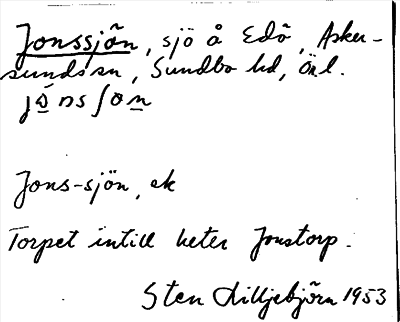 Jonssjön, sjö å Edö, Asker-
sunds sn, Sundbo hd, Örl.
jó̲nsʃon̲
Jons-sjön, ek
Torpet intill heter Jonstorp.
Sten Lilljebjörn 1953